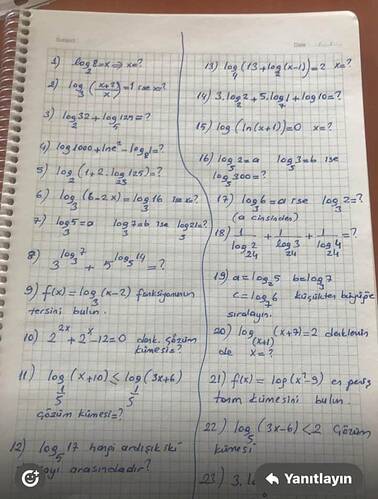 1) log₂8=x ⇒ x=?
2) log₃(x+2/x)=1 ise x=?
3) log₂32 + log₅125=?
4) log1000+lne²-log₈1=?
5) log₂(1+2.log₂₅125)=?
6) log₃(6-2x)=log₃16 ise x=?
7) log₃5=a log₃7=b ise log₃21=?
8) 3^log₃7 + 5^log₅14=?
9) f(x)=log₃(x-2) fonksiyonunun
tersini bulun.
10) 2^2x + 2^x -12=0 denk. çözüm
kümesi?
11) log_1/5(x+10) ≤ log_1/5(3x+6)
Çözüm kümesi=?
12) log₅17 hangi ardışık iki
arasındadır?
13) log₄(13+log₂(x-1))=2 x=?
14) 3.log₂2+5.log₇1+log10=?
15) log(ln(x+1))=0 x=?
16) log₅2=a log₅3=b ise
log₅300=?
17) log₃6=a ise log₃2=?
(a cinsinden)
18) 1/log₂24 + 1/log₃24 + 1/log₄24=?
19) a=log₂5 b=log₃7
c=log₇6 küçükten büyüğe
sıralayın.
20) log₍ₓ₊₁₎(x+7)=2 denklemin
de x=?
21) f(x)=log(x²-9) en geniş
tanım kümesini bulun.
22) log₅(3x-6)<2 Çözüm
kümesi
23) 3.
Yanıtlayın